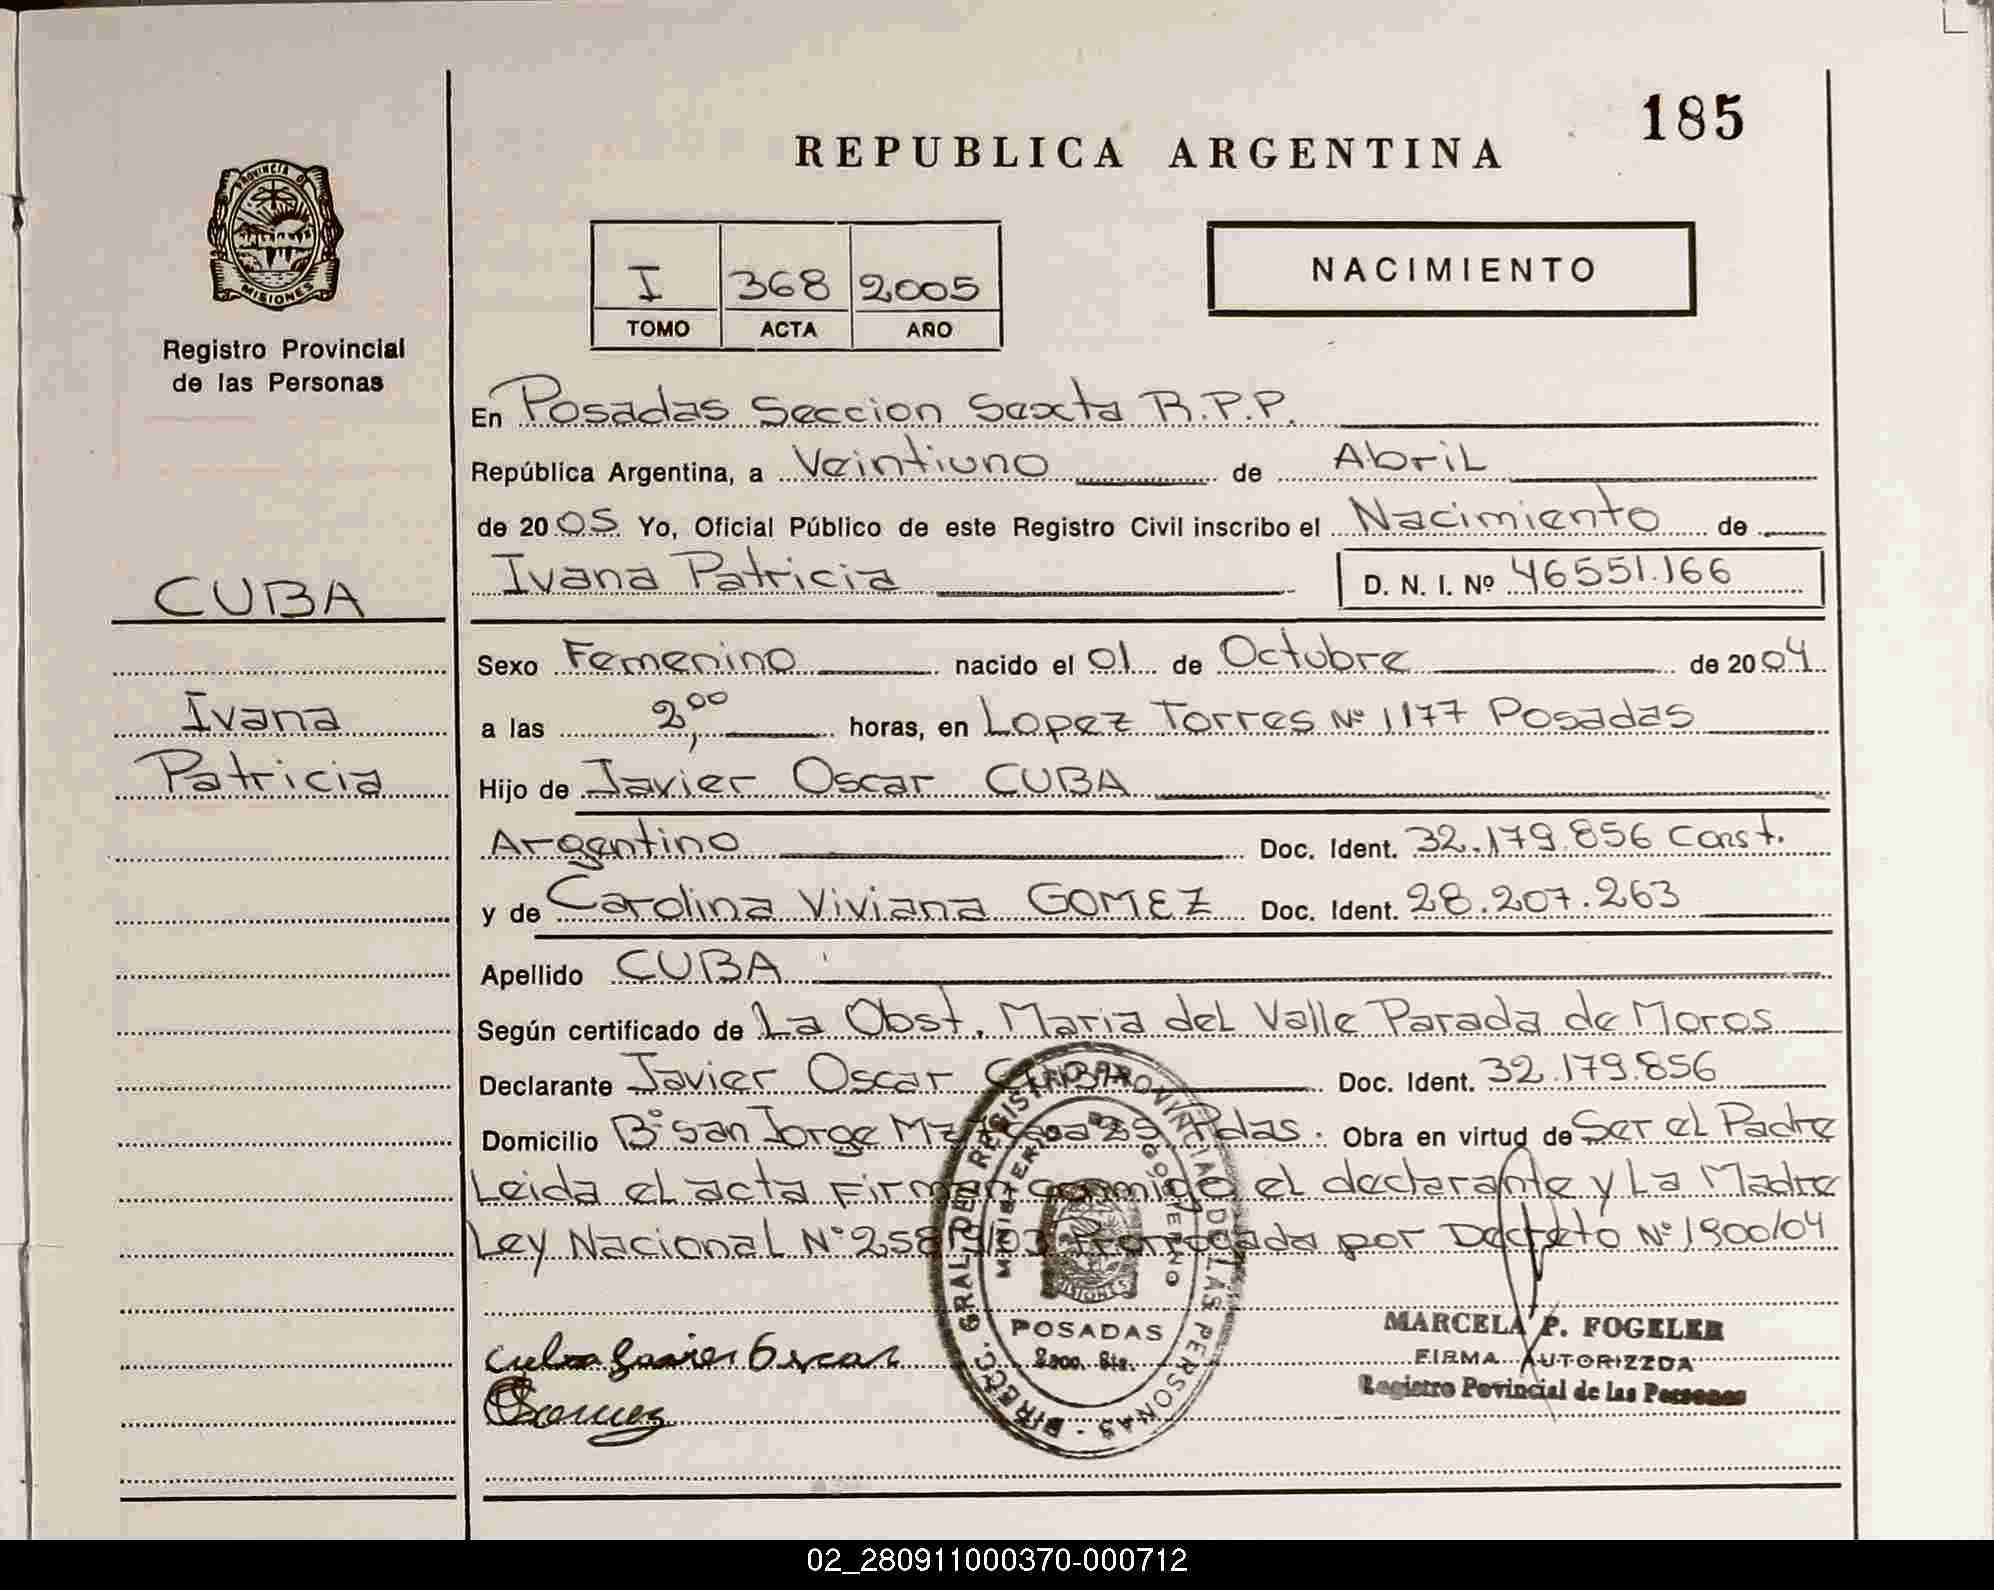 185
REPUBLICA ARGENTINA
PROVINCIA DE
MISIONES
Registro Provincial
de las Personas
I 368 2005
TOMO ACTA AÑO
NACIMIENTO
En Posadas Seccion Sexta R.P.P.
República Argentina, a Veintiuno de Abril
de 2005 Yo, Oficial Público de este Registro Civil inscribo el Nacimiento de
Ivana Patricia D. N. I. Nº 46551.166
CUBA
Ivana
Patricia
Sexo Femenino nacido el 01 de Octubre de 2004
a las 2,00 horas, en Lopez Torres Nº 1177 Posadas
Hijo de Javier Oscar CUBA
Argentino Doc. Ident. 32.179.856 Const.
y de Carolina Viviana GOMEZ Doc. Ident. 28.207.263
Apellido CUBA
Según certificado de La Obst. Maria del Valle Parada de Moros
Declarante Javier Oscar CUBA Doc. Ident. 32.179.856
Domicilio Bº San Jorge Mz Pdas. Obra en virtud de Ser el Padre
Leida el acta Firman conmigo el declarante y La Madre
Ley Nacional Nº por Decreto Nº 1900/04
DIRECC. GRAL. DEL REGISTRO PROVINCIAL DE LAS PERSONAS
MINISTERIO DE GOBIERNO
MISIONES
POSADAS
Secc. 6ta.
Cuba Javier Oscar
Gomez
MARCELA P. FOGELER
FIRMA AUTORIZZDA
Registro Povincial de las Personas
02_280911000370-000712